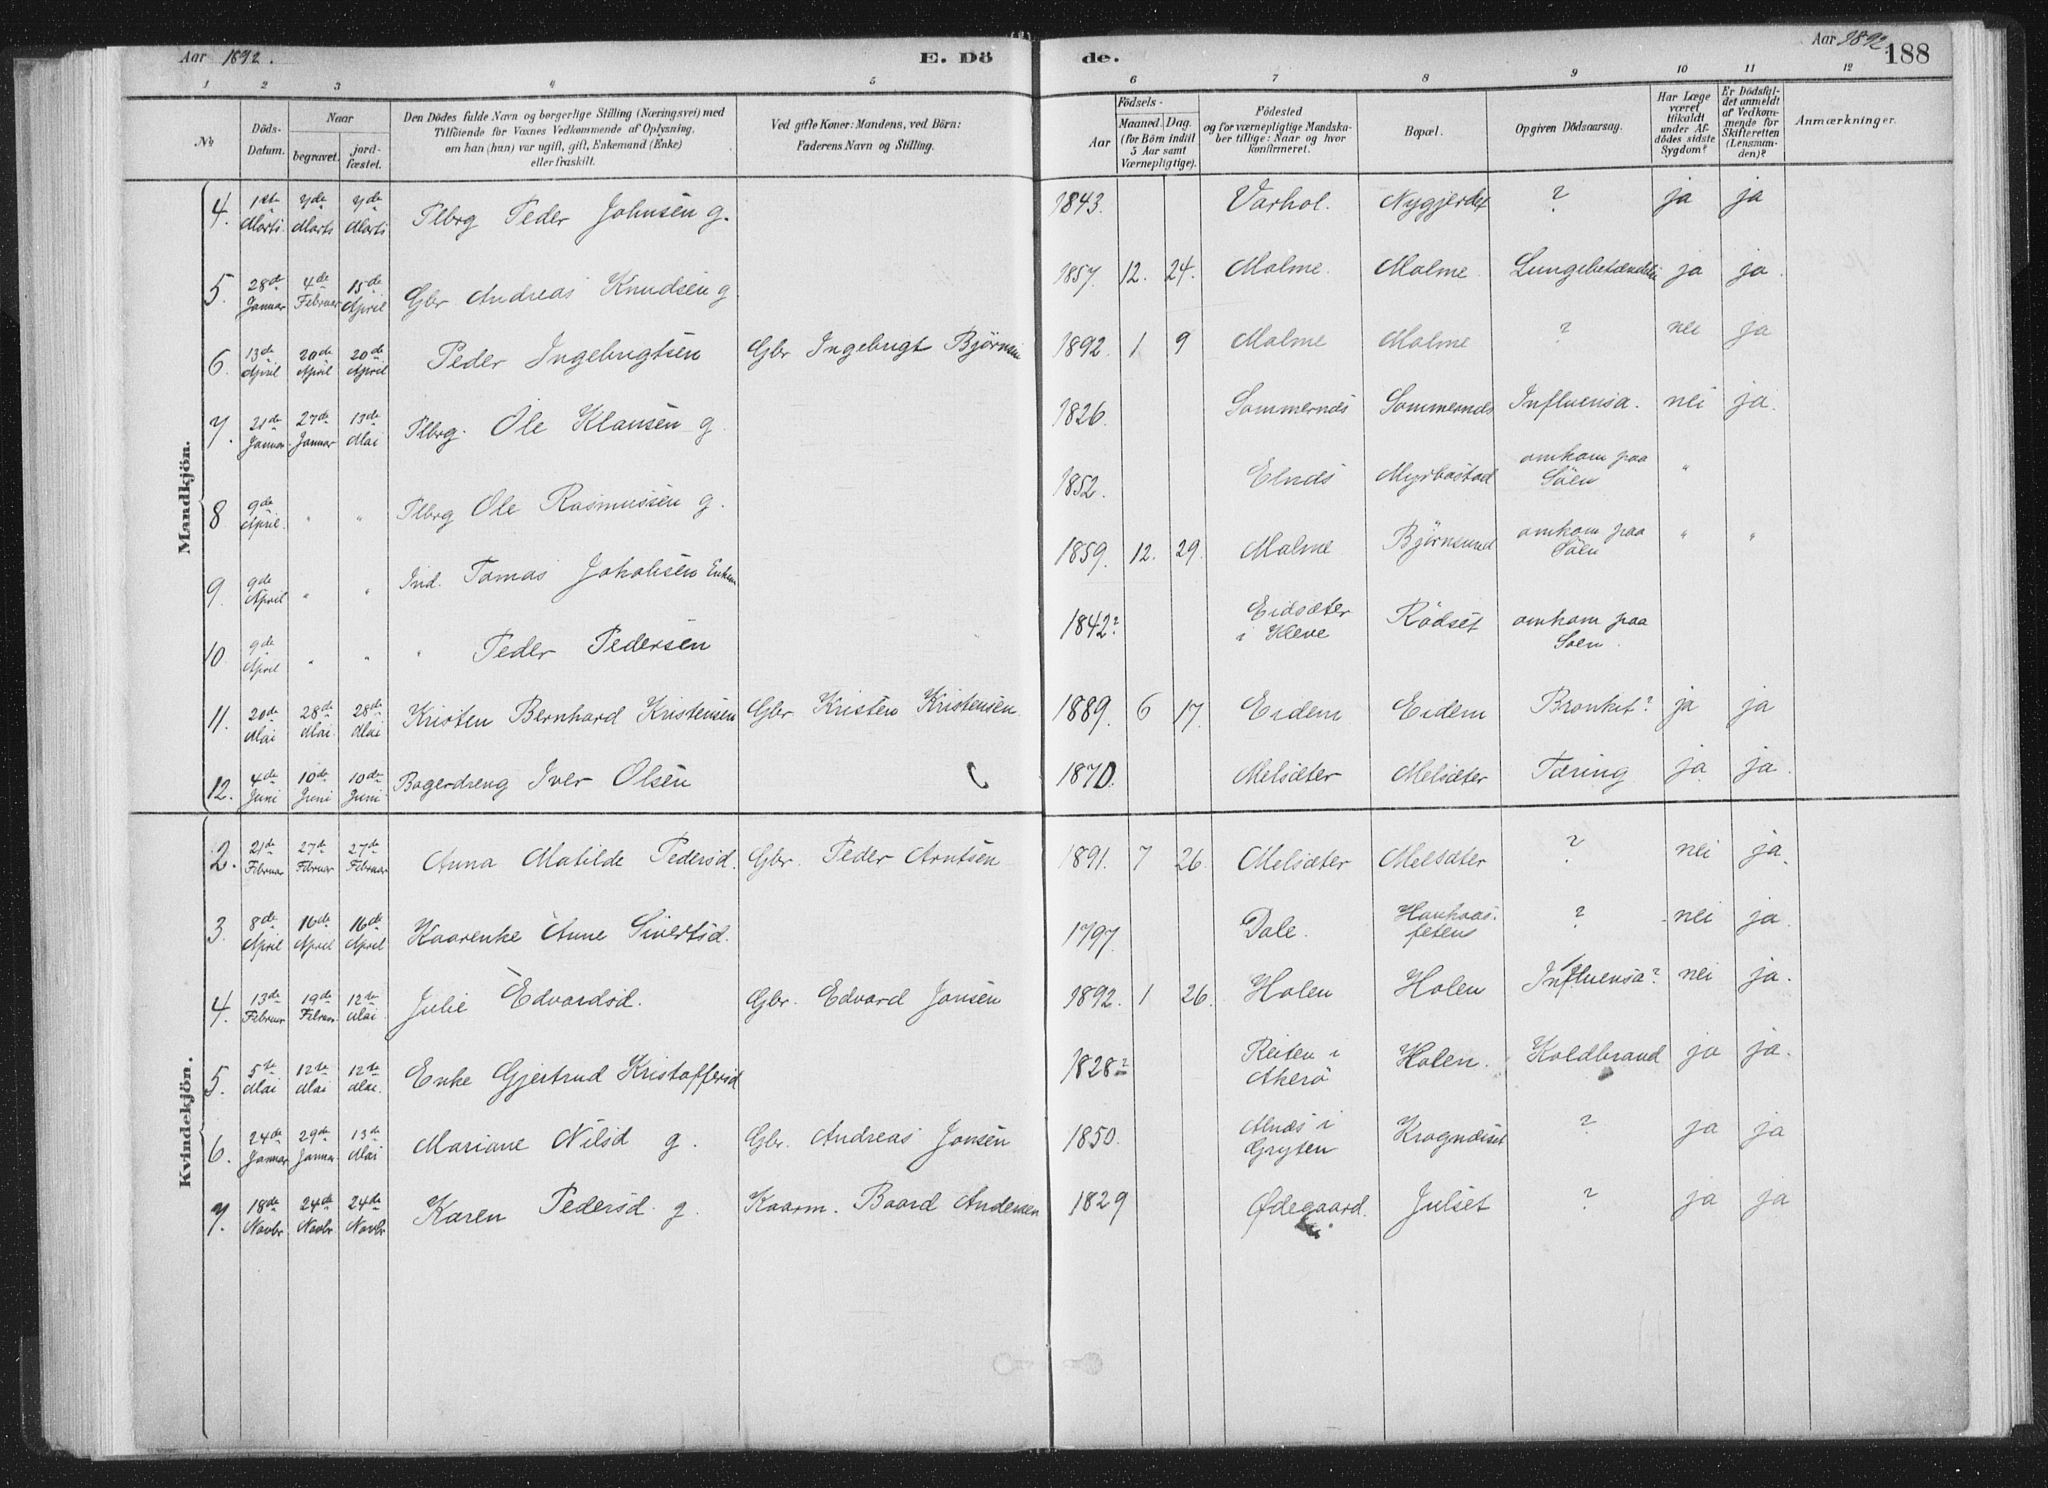 Aar 1892.
E. Dö
de.
Aar 1892.
188
1 2 3 4 5 6 7 8 9 10 11 12
No
Döds-Datum.
Naar
begravet.
jord-fæstet.
Den Dödes fulde Navn og borgerlige Stilling (Næringsvei) med
Tilföiende for Voxnes Vedkommende af Oplysning,
om han (hun) var ugift, gift, Enkemand (Enke)
eller fraskilt.
Ved gifte Koner: Mandens, ved Börn:
Faderens Navn og Stilling.
Födsels-
Aar
Maaned. Dag.
(for Börn indtil
5 Aar samt
Værnepligtige).
Födested
og for værnepligtige Mandska-
ber tillige: Naar og hvor
konfirmeret.
Bopæl.
Opgiven Dödsaarsag.
Har Læge
været
tilkaldt
under Af-
dödes sidste
Sygdom?
Er Dödsfal-
det anmeldt
af Vedkom-
mende for
Skifteretten
(Lensman-
den)?
Anmærkninger.
Mandkjön.
4. 1ste Marts 7de Marts 7de Marts Plbrg Peder Johnsen g. 1843. Varhol. Nygjerdet ? ja ja
5. 28de Januar 4de Februar 15de April Gbr Andreas Knudsen g 1857. 12. 24. Malme. Malme. Lungebetændelse ja ja.
6. 13de April 20de April 20de April Peder Ingebrigtsen Gbr Ingebrigt Bjørnsen 1892. 1 9 Malme Malme ? nei ja
7. 21de Januar 27de Januar 13de Mai Plbrg. Ole Klausen g. 1826. Sommernæs Sommernæs Influensa. nei ja.
8 9de April. " " Plbrg Ole Rasmussen g. 1852. Elnæs Myrbostad omkom paa Söen "
9. 9de April " " Ind. Tomas Jakobsen Enkem 1859. 12. 29. Malme Bjørnsund omkom paa Söen " "
10. 9de April " " " Peder Pedersen 1842? Eidsæter i Kleve Rödset omkom paa Söen.
11. 20de Mai 28de Mai. 28de Mai Kristen Bernhard Kristensen Gbr Kristen Kristensen 1889. 6 17. Eidem Eidem Bronkit? ja ja
12. 4de Juni 10de Juni 10de Juni Bagerdreng Iver Olsen 1870. Melsæter Melsæter Tæring ja ja.
Kvindekjön.
2. 21de Februar 27de Februar 27de Februar Anna Matilde Pedersd. Gbr. Peder Arntsen 1891. 7 26. Melsæter Melsæter ? nei ja.
3. 8de April 16de April 16de April Kaarenke Anne Sivertsd. 1797. Dale. Haukaas-fetens ? nei ja.
4. 13de Februar 19de Februar 12te Mai Julie Edvardsd. Gbr. Edvard Jonsen 1892. 1 26. Holen Holen Influensa? nei ja.
5. 5te Mai 12te Mai 12te Mai. Enke Gjertrud Kristoffersd 1828? Reiten i Akerö Holen. Koldbrand ja ja.
6. 24de Januar 29de Januar 13de Mai Mariane Nilsd g. Gbr. Andreas Jonsen 1850. Alnæs i Gryten Kragnæset ? ja ja
7. 18de Novbr. 24de Novbr 24de Novbr Karen Pedersd. g. Kaarm. Baard Andersen 1829 Ødegaard. Julset ? ja ja